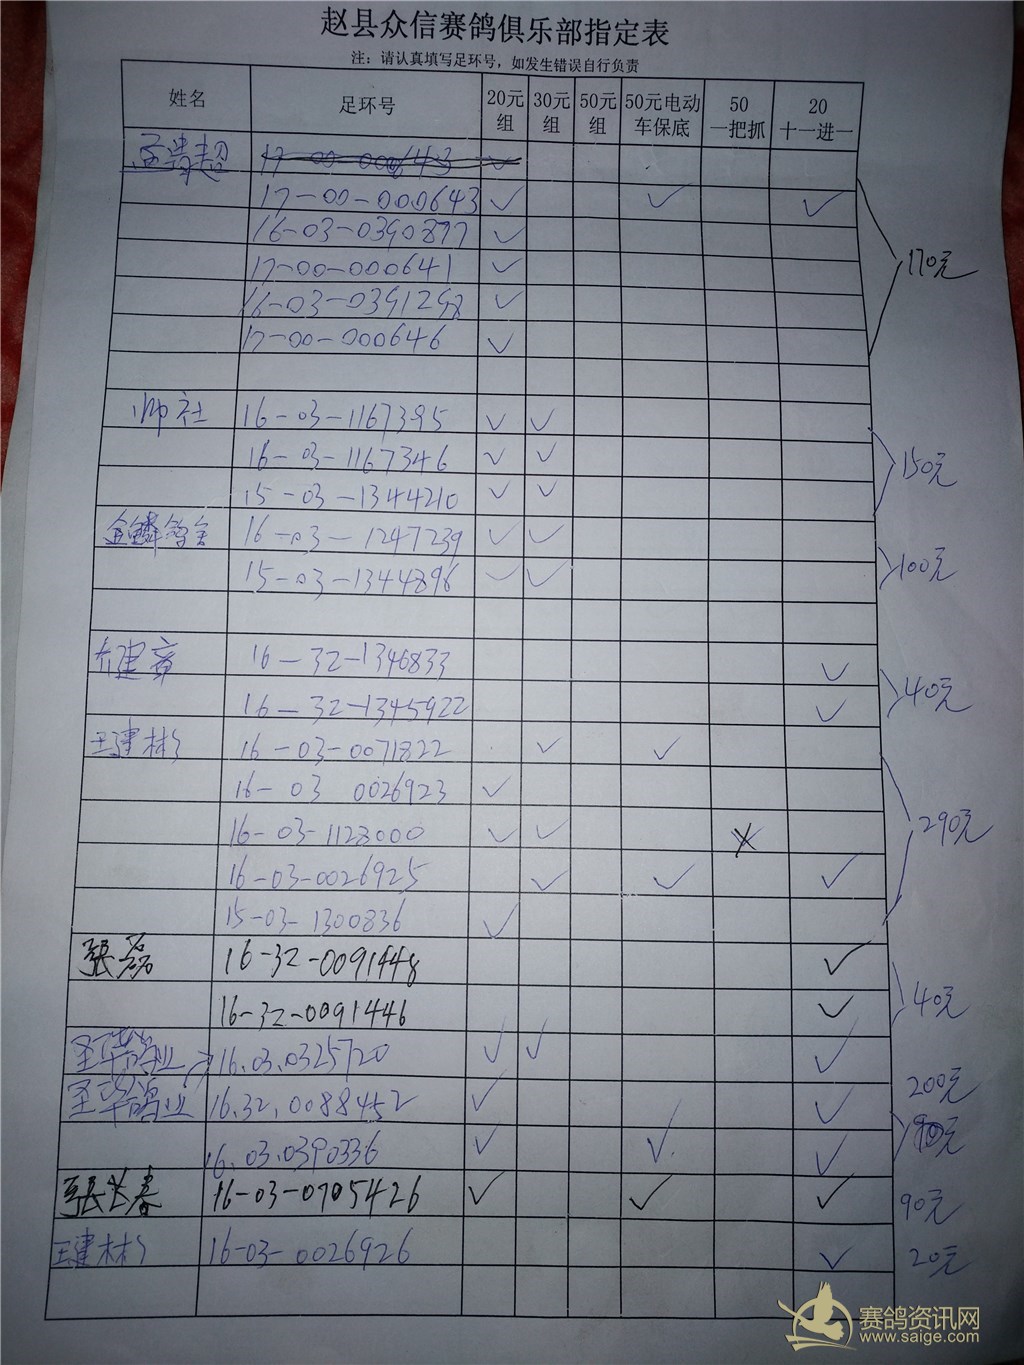 赵县众信赛鸽俱乐部指定表
注：请认真填写足环号，如发生错误自行负责
姓名 足环号 20元组 30元组 50元组 50元电动车保底 50一把抓 20十一进一
孟贵超
17-00-000643 ✓ ✓ ✓
16-03-0390877 ✓
17-00-000641 ✓
16-03-0391298 ✓
17-00-000646 ✓
170元
帅社 16-03-1167395 ✓ ✓
16-03-1167346 ✓ ✓
15-03-1344210 ✓ ✓
150元
金鳞鸽舍 16-03-1247239 ✓ ✓
15-03-1344896 ✓ ✓
100元
乔建章 16-32-1346833 ✓
16-32-1345922 ✓
40元
王建彬 16-03-0071822 ✓ ✓
16-03 0026923 ✓
16-03-1128000 ✓ ✓
16-03-0026925 ✓ ✓ ✓
15-03-1300836 ✓
290元
張磊 16-32-0091448 ✓
16-32-0091446 ✓
40元
圣华鸽业 16.03.0325720 ✓ ✓ ✓
圣华鸽业 16.32.0088452 ✓ ✓
200元
16.03.0390336 ✓ ✓ ✓
張长春 16-03-0705426 ✓ ✓ ✓ 90元
王建彬 16-03-0026926 ✓ 20元
赛鸽资讯网
www.saige.com